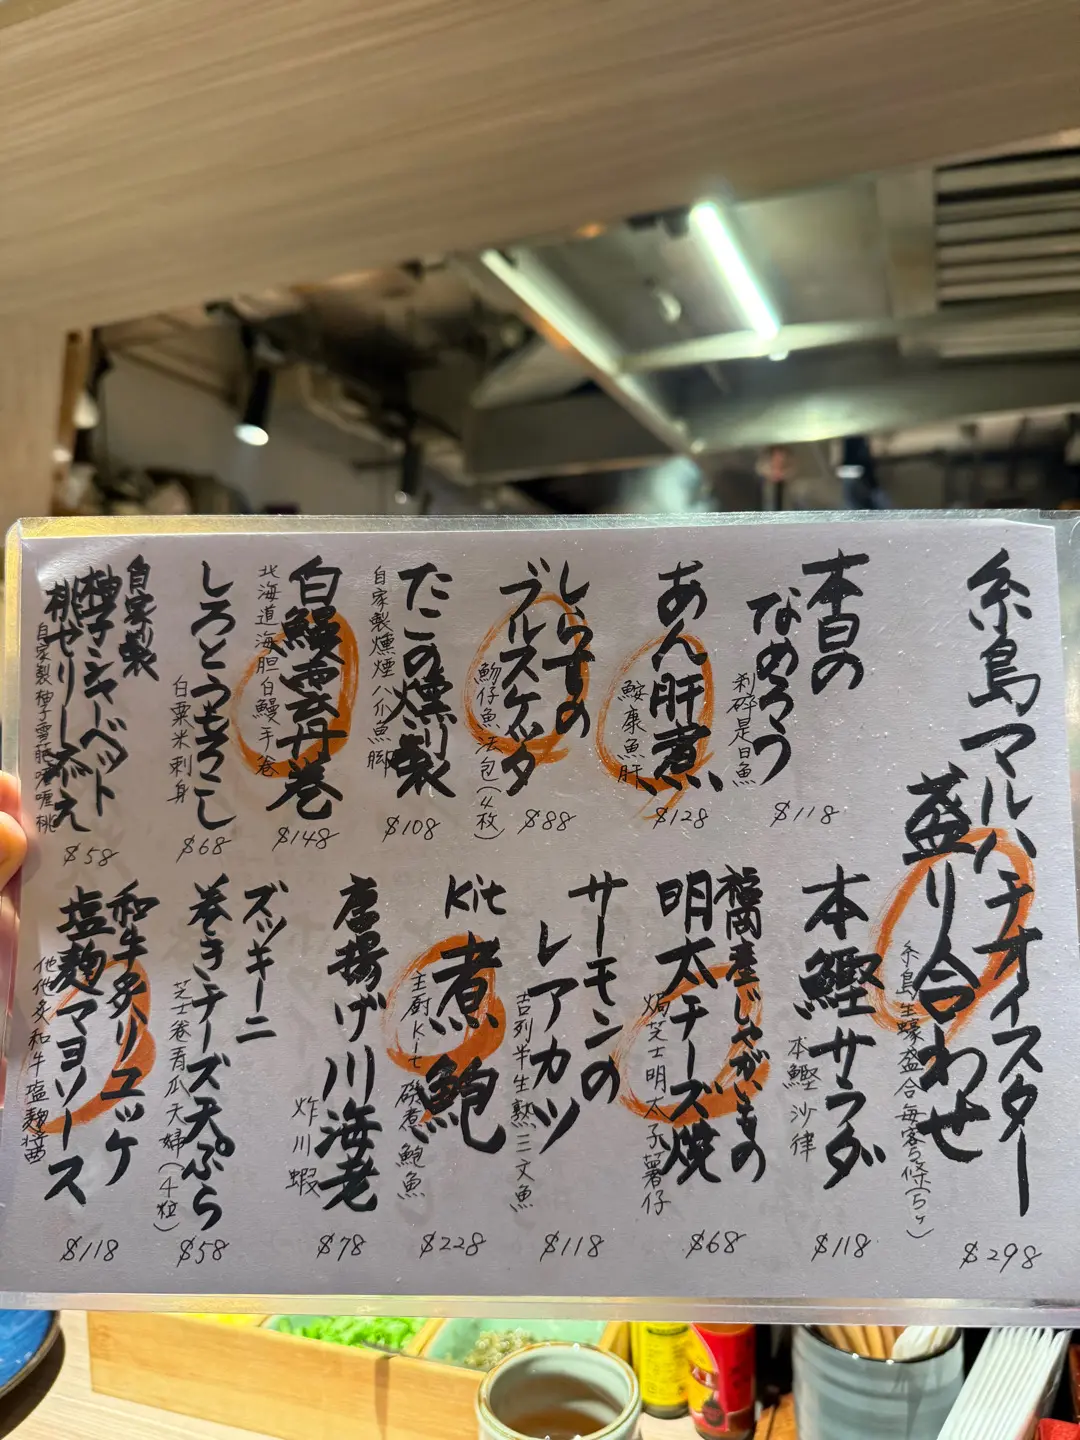 糸島マルハチオイスター
盛り合わせ
糸島生蠔盛合每客6條(5ヶ)
$298
本日の
なめろう
剁碎是日魚
$118
あん肝煮
鮟康魚肝
$128
しらすの
ブルスケッタ
魩仔魚法包(4枚)
$88
たこの燻製
自家製燻煙八爪魚脚
$108
白鰻雲丹巻
北海道海胆白鰻手卷
$148
しろとうもろこし
白粟米刺身
$68
自家製
柚子シャーベット
桃ゼリー添え
自家製柚子雪葩啫喱桃
$58
本鰹サラダ
本鰹沙律
$118
福岡産じゃがいもの
明太チーズ焼
焗芝士明太子薯仔
$68
サーモンの
レアカツ
吉列半生熟三文魚
$118
kit
煮鮑
主廚kit磯煮鮑魚
$228
唐揚げ川海老
炸川蝦
$78
ズッキーニ
巻きチーズ天ぷら
芝士卷青瓜天婦(4粒)
$58
和牛タタリユッケ
塩麹マヨソース
他他炙和牛塩麹醬
$118